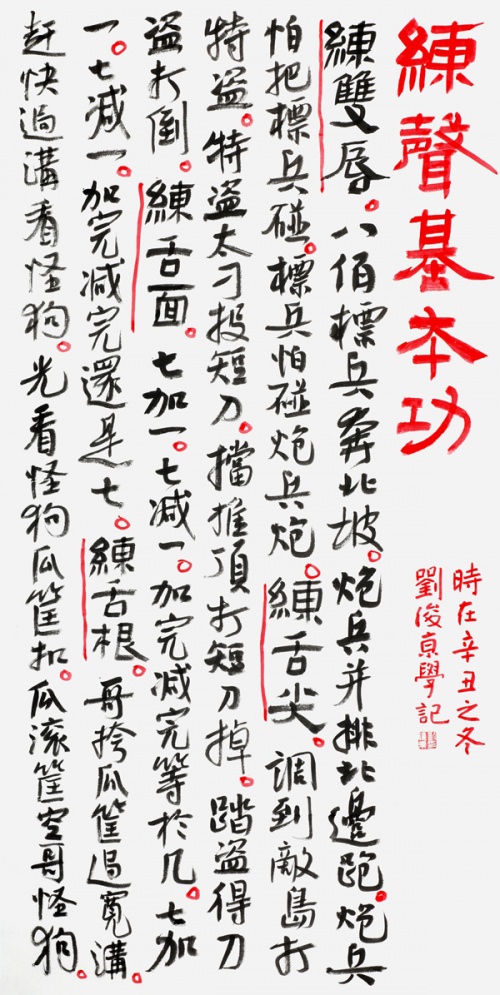 練聲基本功
時在辛丑之冬
劉俊京學記
練雙唇。八佰標兵奔北坡。炮兵并排北邊跑。炮兵
怕把標兵碰。標兵怕碰炮兵炮。練舌尖。調到敵島打
特盜。特盜太刁投短刀。擋推頂打短刀掉。踏盜得刀
盜打倒。練舌面。七加一。七减一。加完减完等於几。七加
一。七减一。加完减完還是七。練舌根。哥挎瓜筐過寬溝。
赶快過溝看怪狗。光看怪狗瓜筐扣。瓜滚筐空哥怪狗。